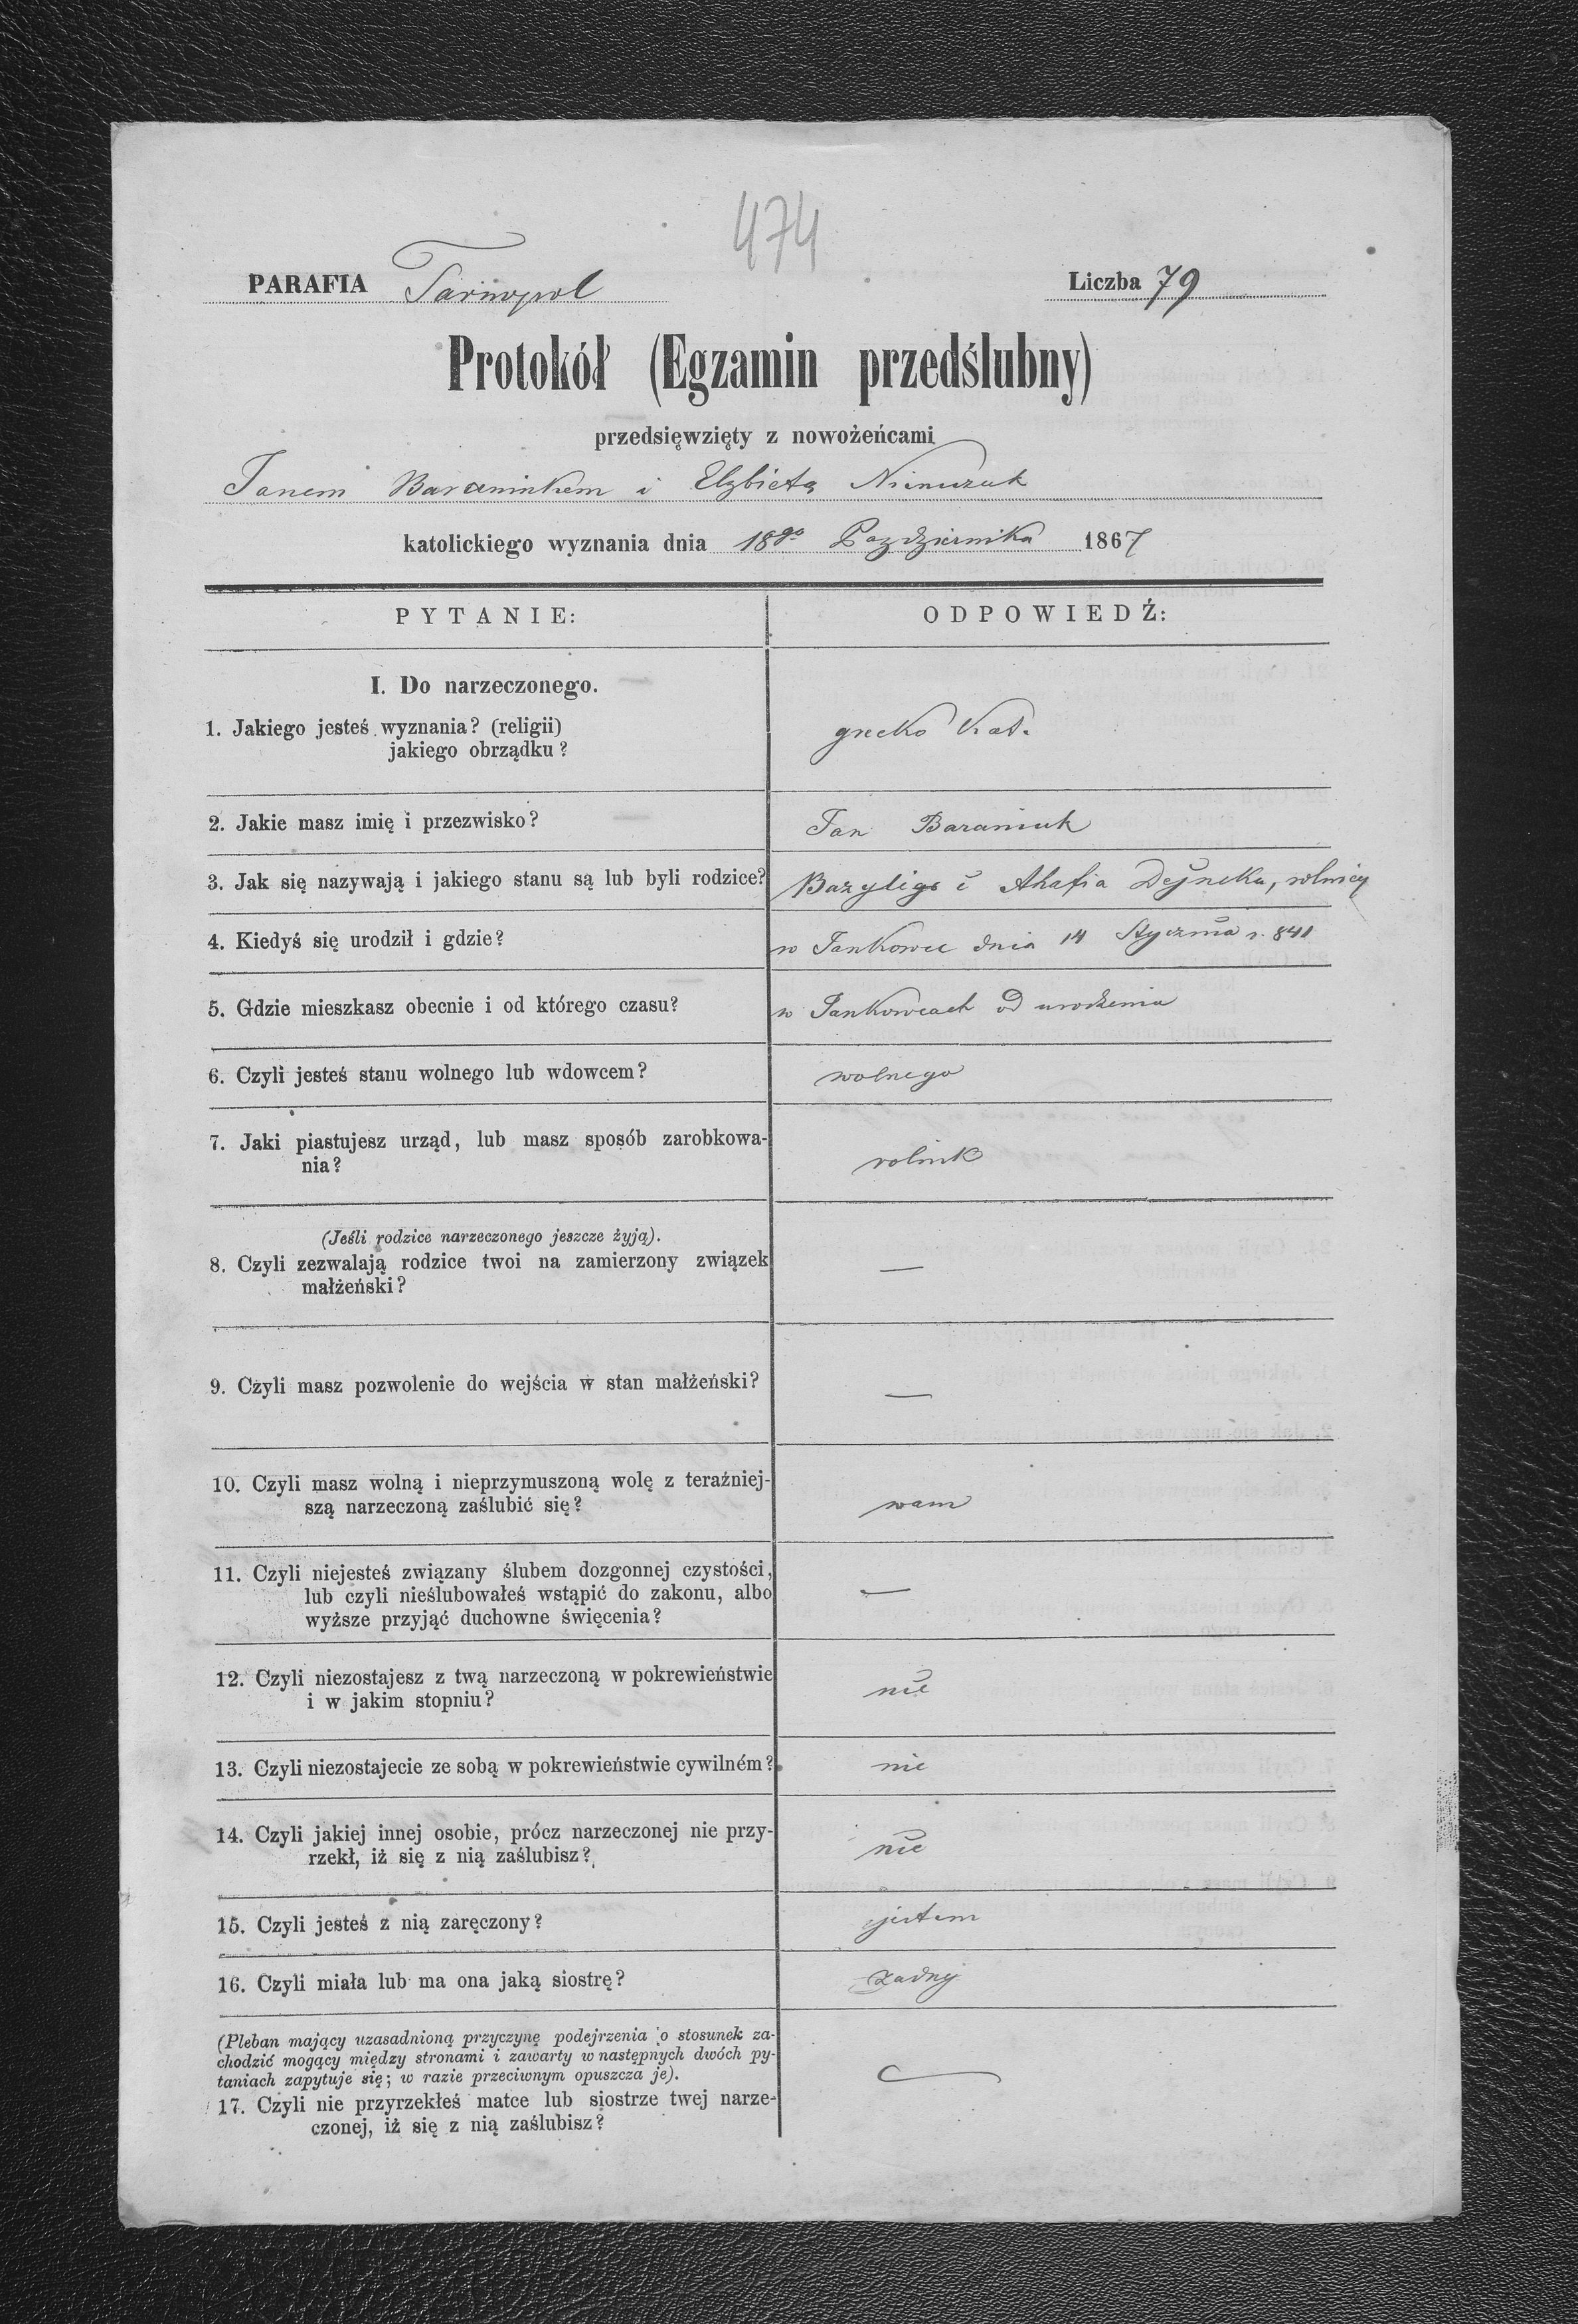 474
PARAFIA Tarnopol
Liczba 79
Protokół (Egzamin przedślubny)
przedsięwzięty z nowożeńcami
Janem Baraniukem i Elżbietą
katolickiego wyznania dnia 18go Pazdziernika 1867
PYTANIE:
ODPOWIEDŹ:
I. Do narzeczonego.
1. Jakiego jesteś wyznania? (religii)
jakiego obrządku?
grecko Kat.
2. Jakie masz imię i przezwisko?
Jan Baraniuk
3. Jak się nazywają i jakiego stanu są lub byli rodzice?
Bazyligo i Ahafia Dejneka, rolnicy
4. Kiedyś się urodził i gdzie?
w Jankowce dnia 14 Stycznia r. 841
5. Gdzie mieszkasz obecnie i od którego czasu?
w Jankowcach od urodzenia
6. Czyli jesteś stanu wolnego lub wdowcem?
wolnego
7. Jaki piastujesz urząd, lub masz sposób zarobkowa-
nia?
rolnik
(Jeśli rodzice narzeczonego jeszcze żyją).
8. Czyli zezwalają rodzice twoi na zamierzony związek
małżeński?
—
9. Czyli masz pozwolenie do wejścia w stan małżeński?
—
10. Czyli masz wolną i nieprzymuszoną wolę z teraźniej-
szą narzeczoną zaślubić się?
mam
11. Czyli niejesteś związany ślubem dozgonnej czystości,
lub czyli nieślubowałeś wstąpić do zakonu, albo
wyższe przyjąć duchowne święcenia?
—
12. Czyli niezostajesz z twą narzeczoną w pokrewieństwie
i w jakim stopniu?
nie
13. Czyli niezostajecie ze sobą w pokrewieństwie cywilném?
nie
14. Czyli jakiej innej osobie, prócz narzeczonej nie przy-
rzekł, iż się z nią zaślubisz?
nie
15. Czyli jesteś z nią zaręczony?
jestem
16. Czyli miała lub ma ona jaką siostrę?
żadnej
(Pleban mający uzasadnioną przyczynę podejrzenia o stosunek za-
chodzić mogący między stronami i zawarty w następnych dwóch py-
taniach zapytuje się; w razie przeciwnym opuszcza je).
17. Czyli nie przyrzekłeś matce lub siostrze twej narze-
czonej, iż się z nią zaślubisz?
—